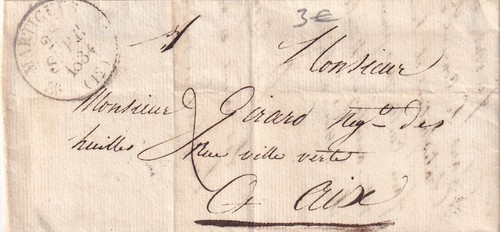 3€
MARTIGUES
1834
(12)
Monsieur
Monsieur Girard Neg.t des
huilles Rue ville verte
A Aix